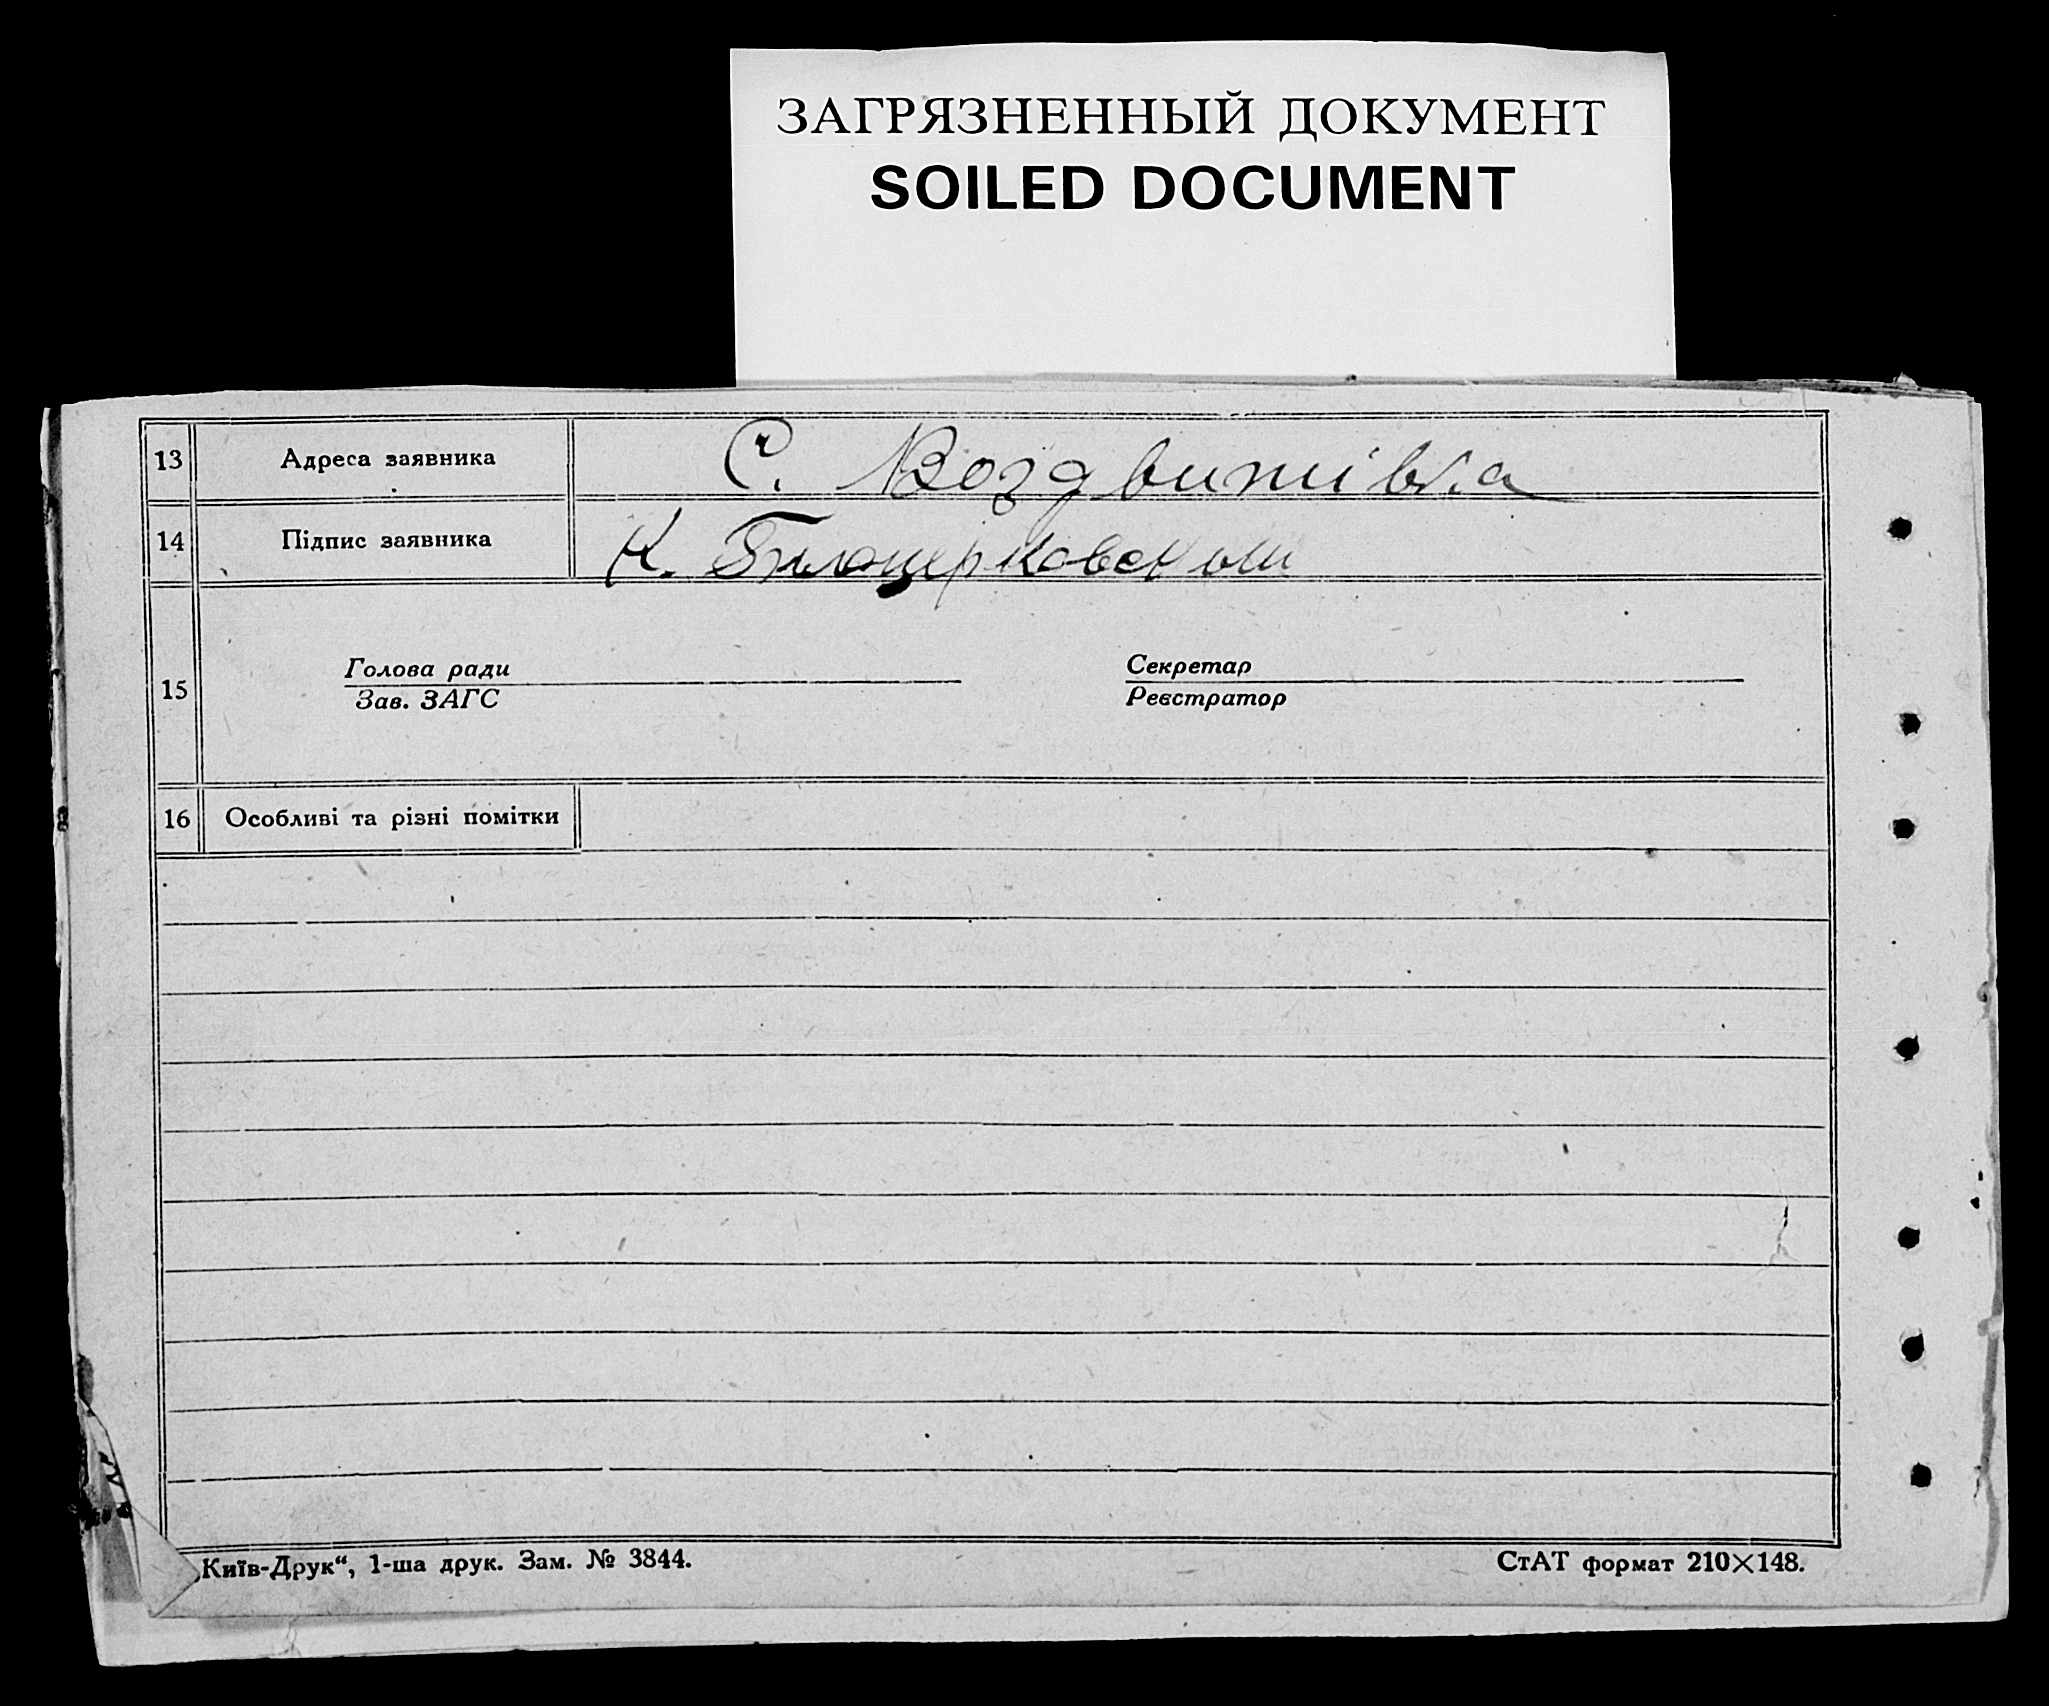 ЗАГРЯЗНЕННЫЙ ДОКУМЕНТ
SOILED DOCUMENT
13 Адреса заявника С. Воздвижівка
14 Підпис заявника К. Білоцерковский
15 Голова ради Секретар
Зав. ЗАГС Реєстратор
16 Особливі та різні помітки
„Київ-Друк“, 1-ша друк. Зам. № 3844. СтАТ формат 210×148.